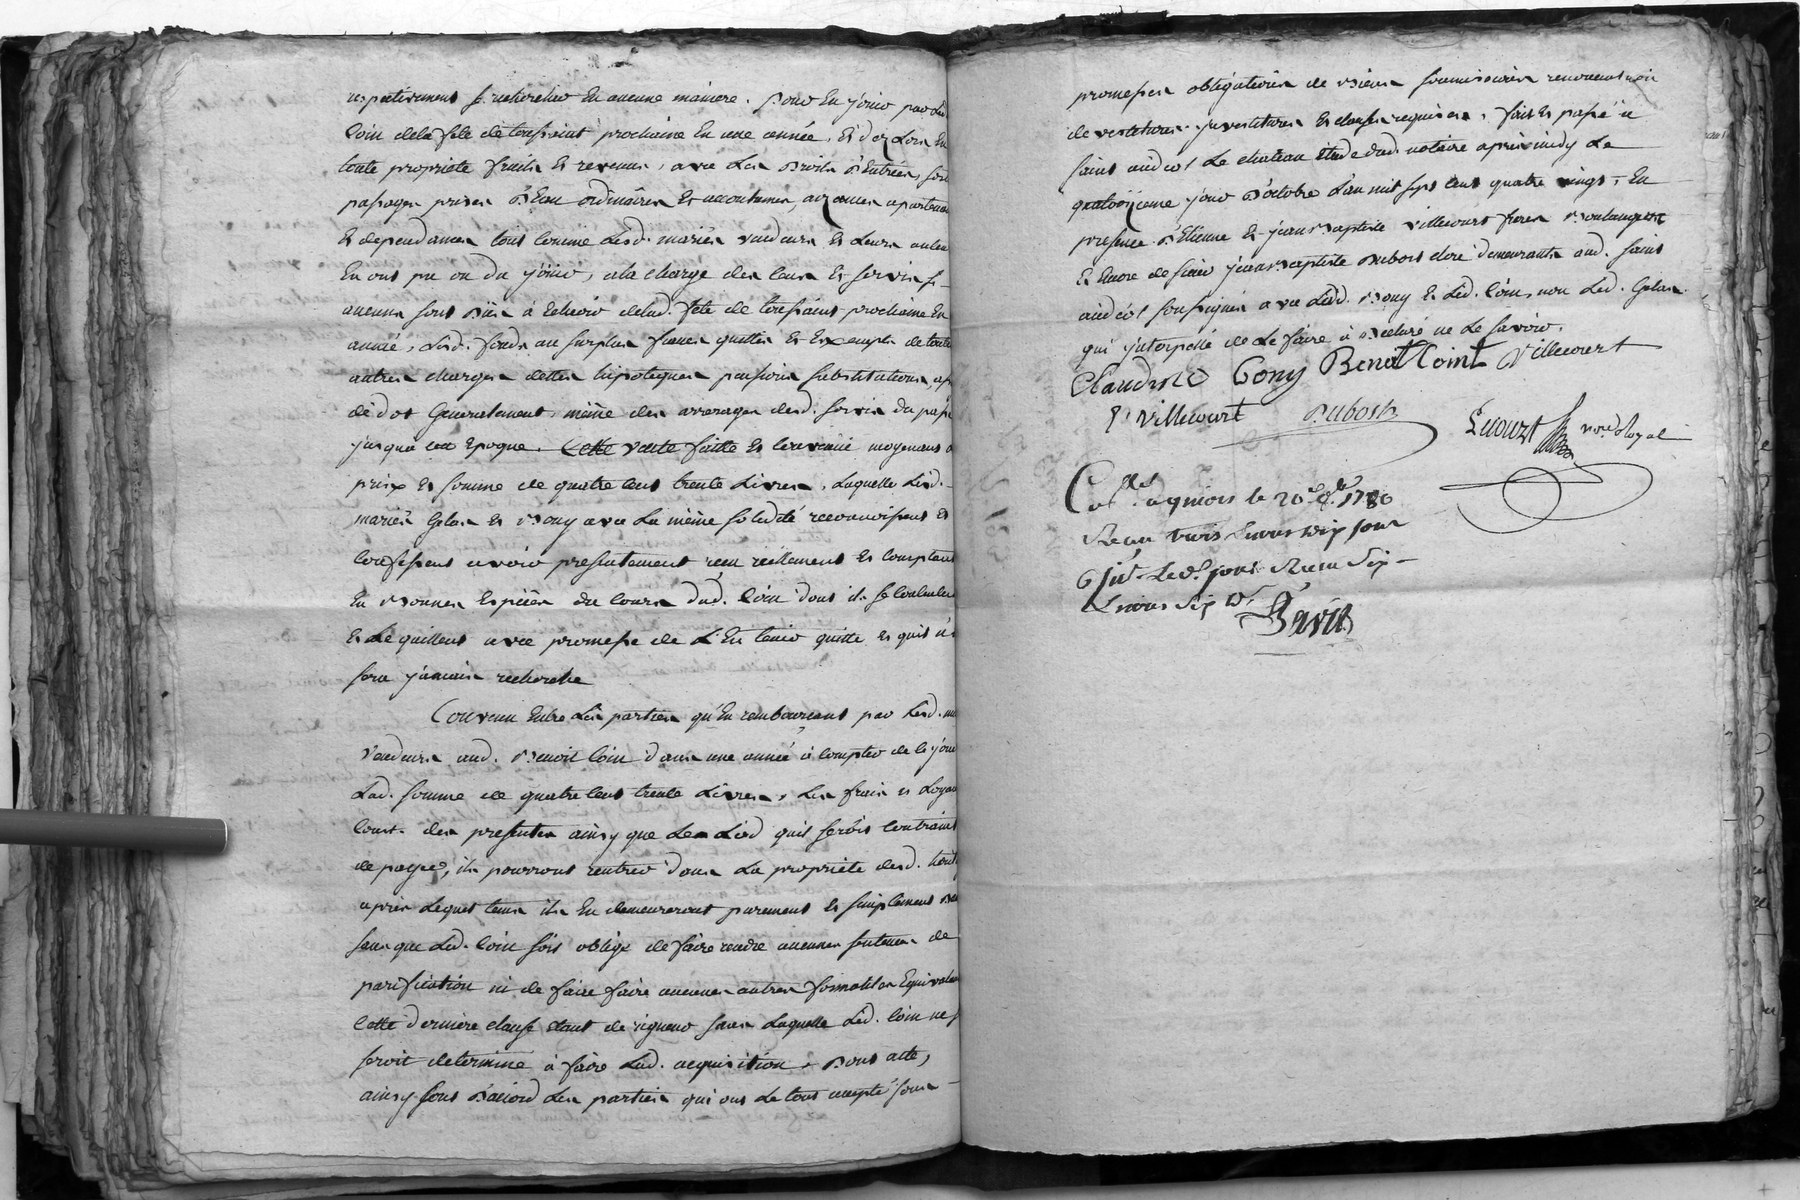 respectivement se rechercher En aucune maniere. Pour En jouir par led.
Coin de la fete de toussaint prochaine En une année, Et dez Lors En
toute propriete fruits Et revenus, avec Les Droits D'Entrées, sort
passages prises D'Eau ordinaires Et accoutumées, aizances apartenan
Et dependances tout Comme Lesd. mariés vendeurs Et Leurs auteu
En ont pu ou du jouir, a la charge des Cens Et servis si
aucuns sont Dûs à Echeoir delad. fete de toussaint prochaine En
année, Lesd. fonds au surplus francs quittes Et Exempts de toute
autres charges dettes hipoteques pensions substitutions,
de dot Generalement, même des arrerages desd. servis du passé
jusqua cette Epoque. Cette vente faitte Et Convenüe moyenant
prix Et somme de quatre Cent trente Livres, Laquelle Lesd.
mariés Gelas Et Bony avec La même solidité reconnoissent Et
Confessent avoir presentement reçu réellement Et Comptant
En Bonnes Espèces du Cours dud. Coin dont ils se Contentent
Et Le quittent avec promesse de L'En tenir quitte Et quil n'e
sera jamais recherché
Convenu Entre Les parties qu'En remboursant par Lesd. m
Vendeurs aud. Benoit Coin dans une année à Compter de ce jour
Lad. somme de quatre Cent trente Livres, Les frais Et Loyau
Cout. des presentes ainsy que Les Lod quil seroit Contraint
de payer, ils pourront rentrer dans La propriete desd. fond
après Lequel tems ils En demeureront purement Et simplement
sans que Led. Coin soit obligé de faire rendre aucunes sentences de
purification ni de faire faire aucunes autres formalités Equivalen
Cette derniere clause étant de rigueur sans Laquelle Led. Coin ne s
seroit determiné à faire Lad. acquisition, Dont acte,
ainsy sont D'accord Les parties qui ont Le tout accepté sous
promesses obligations de Biens soumissions renonciations
devestitures investitures Et clauses requises, fait Et passé à
Saint andéol Le chateau Etude dud. notaire après midy Le
quatorzieme jour D'octobre L'an mil sept cent quatre vingt, En
presence D'Etienne Et jean Baptiste Villecourt freres Boulangers
Et Encore de sieur jean Baptiste Dubost clerc demeurants aud. Saint
andéol soussignés avec Lesd. Bony Et Led. Coin, non Led. Gelas
qui interpellé de Le faire à Declaré ne Le savoir.
Claudine Bony Benoit Coint Villecourt
E Villecourt Dubost Lecourt nore. Royal
Collé. a givors le 20 8bre 1780
Reçu trois livres dix sous
Ledt. jour Reçu Six
Livres Six d.